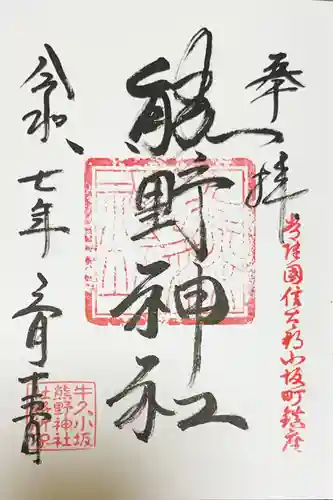 奉拝
常陸国信太郡小坂町鎮座
熊野神社
令和七年三月十六日
牛久小坂
熊野神社
社務所印